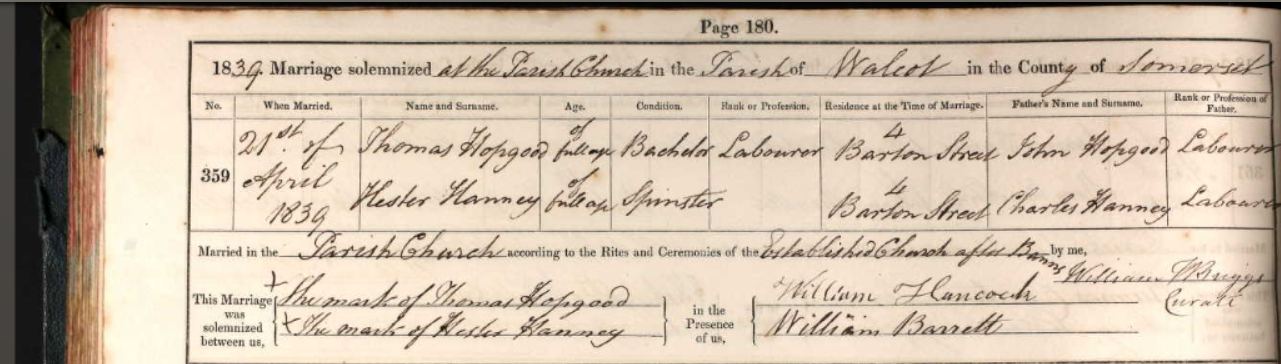 Page 180.
1839. Marriage solemnized at the Parish Church in the Parish of Walcot in the County of Somerset
No. When Married. Name and Surname. Age. Condition. Rank or Profession. Residence at the Time of Marriage. Father's Name and Surname. Rank or Profession of Father.
359
21st of April 1839
Thomas Hopgood of full age Bachelor Labourer 4 Barton Street John Hopgood Labourer
Hester Hanney of full age Spinster 4 Barton Street Charles Hanney Labourer
Married in the Parish Church according to the Rites and Ceremonies of the Established Church after Banns by me,
William Briggs
Curate
This Marriage was solemnized between us,
X The mark of Thomas Hopgood
X The mark of Hester Hanney
in the Presence of us,
William Hancock
William Barrett